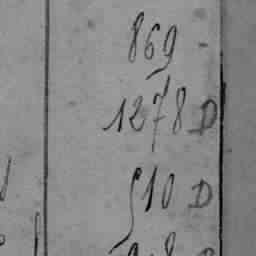 869 -
1278 D
510 D